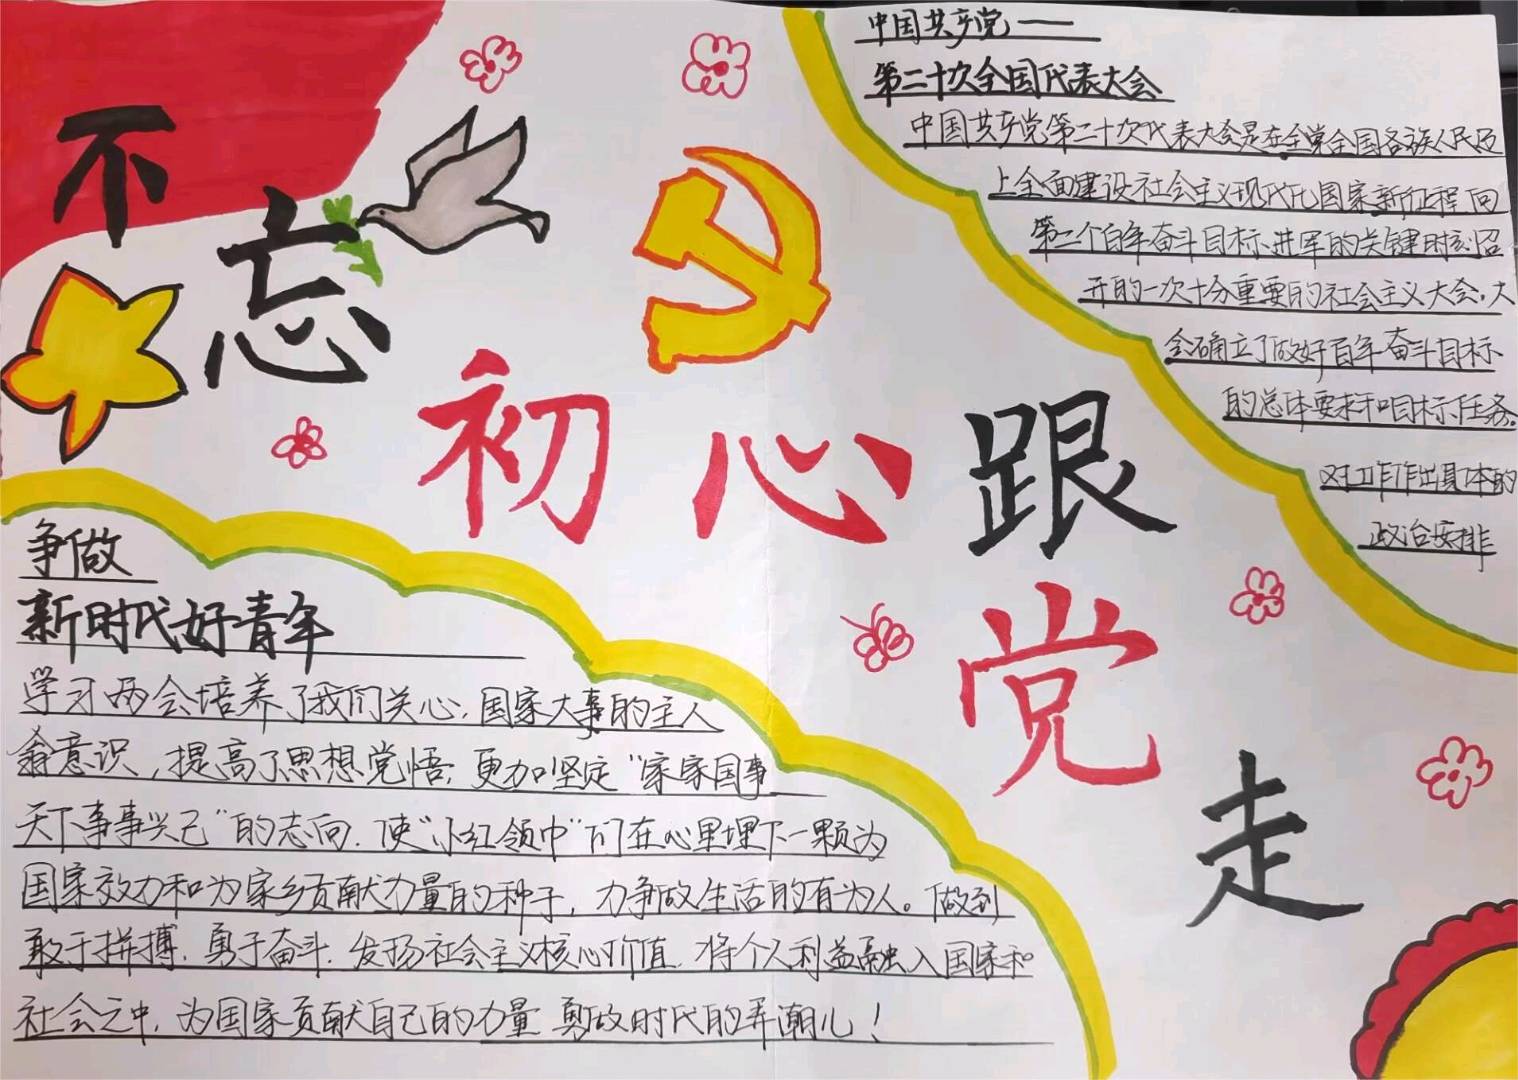 不忘
初心跟
党
走
中国共产党——
第二十次全国代表大会
中国共产党第二十次代表大会是在全党全国各族人民历
上全面建设社会主义现代化国家新征程向
第二个百年奋斗目标进军的关键时刻召
开的一次十分重要的社会主义大会，大
会确立了做好百年奋斗目标
的总体要求和目标任务。
对工作作出具体的
政治安排
争做
新时代好青年
学习两会培养了我们关心，国家大事的主人
翁意识，提高了思想党悟，更加坚定“家家国事
天下事事兴己”的志向，使“小红领巾”们在心里埋下一颗为
国家效力和为家乡贡献力量的种子，力争做生活的有为人。做到
敢于拼搏，勇于奋斗，发扬社会主义核心价值，将个人利益融入国家和
社会之中，为国家贡献自己的力量 勇做时代的弄潮儿！